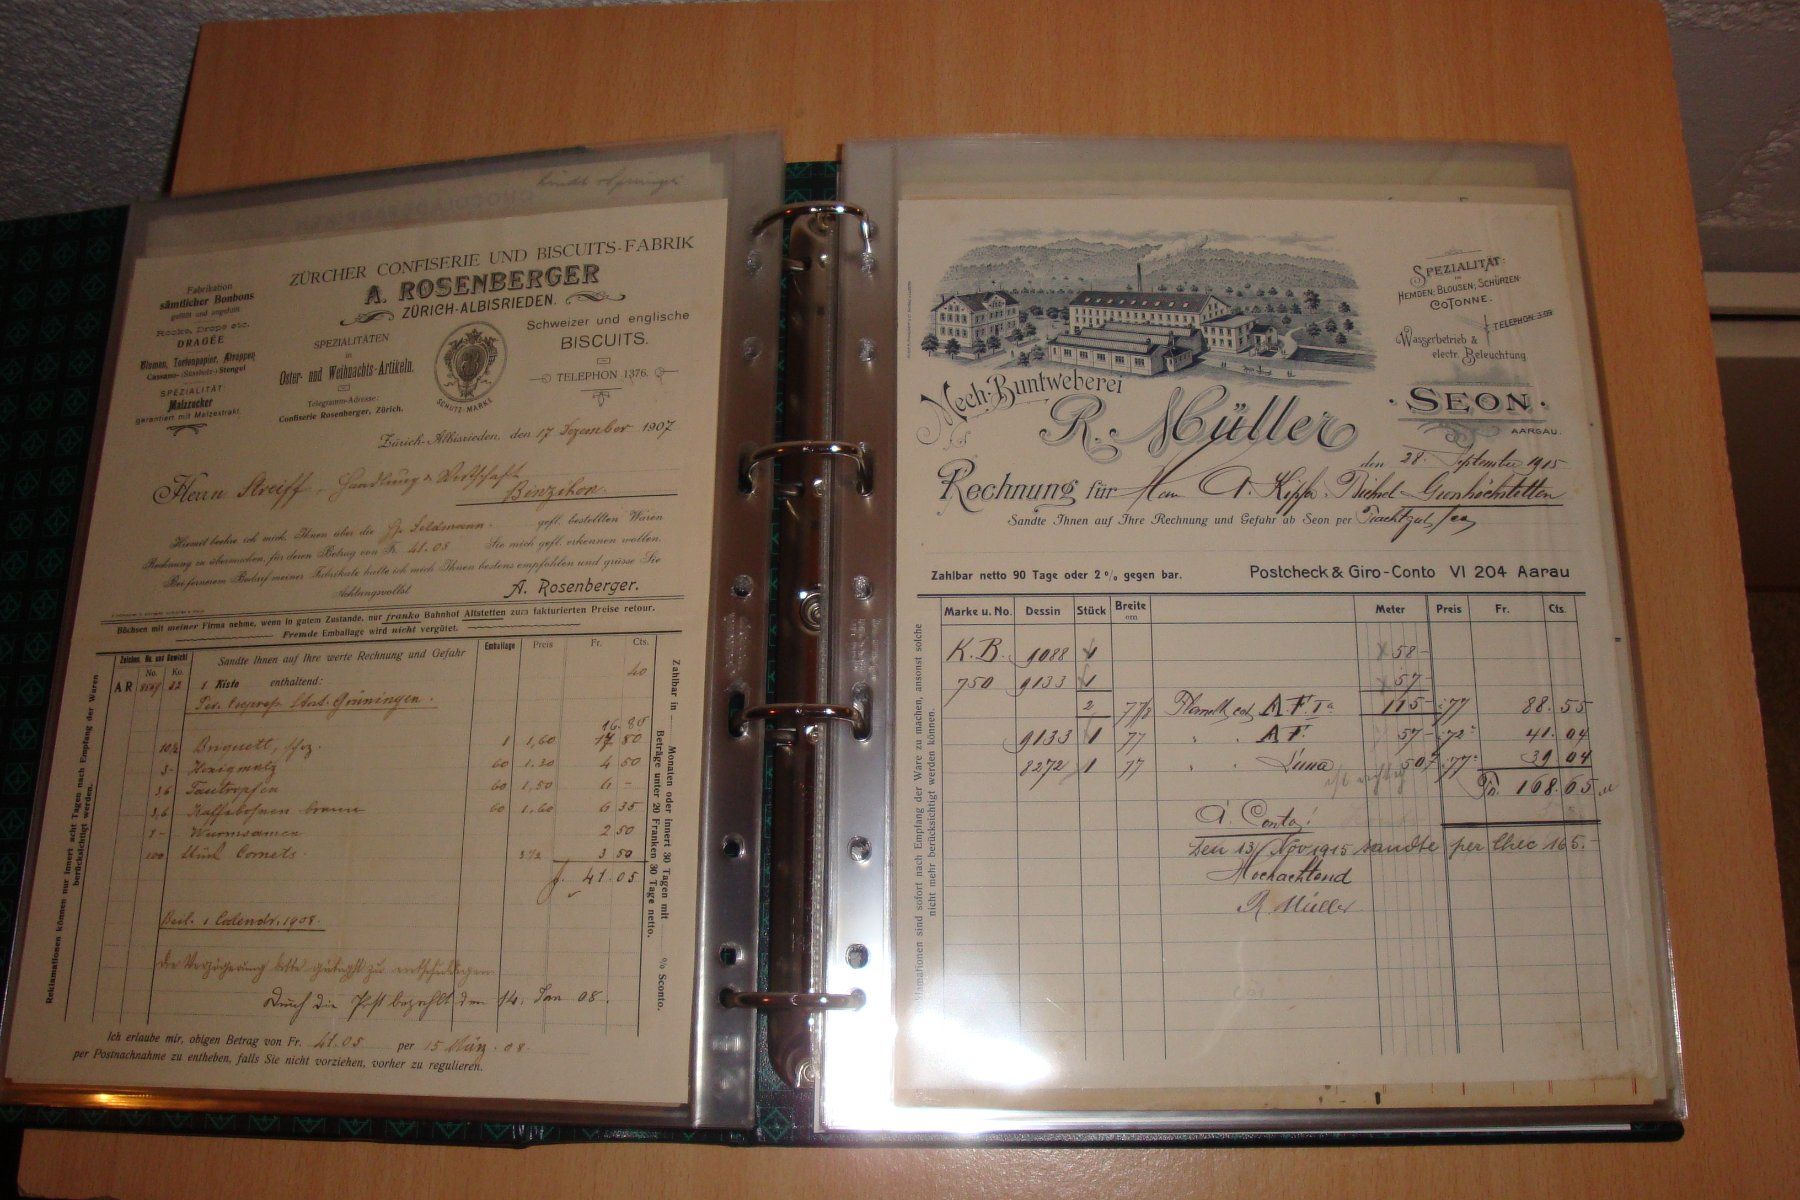 ZÜRCHER CONFISERIE UND BISCUITS-FABRIK
A. ROSENBERGER
ZÜRICH-ALBISRIEDEN.
Fabrikation
sämtlicher Bonbons
gefüllt und ungefüllt
Rocks, Drops etc.
DRAGÉE
Blumen, Tortenpapier, Atrappen
Cassano-(Süssholz-) Stengel
SPEZIALITÄT:
Malzzucker
garantiert mit Malzextrakt.
SPEZIALITÄTEN
in
Oster- und Weihnachts-Artikeln.
Telegramm-Adresse:
Confiserie Rosenberger, Zürich.
SCHUTZ-MARKE
Schweizer und englische
BISCUITS.
TELEPHON 1376.
Zürich-Albisrieden, den 17 Dezember 1907
Herrn Streiff, Handlung & Wirtschaft
Binzikon.
Hiemit beehre ich mich, Ihnen über die Hr. Feldmann. gefl. bestellten Waren
Rechnung zu übermachen, für deren Betrag von Fr. 41.05 Sie mich gefl. erkennen wollen.
Bei fernerem Bedarf meiner Fabrikate halte ich mich Ihnen bestens empfohlen und grüsse Sie
Achtungsvollst
A. Rosenberger.
Büchsen mit meiner Firma nehme, wenn in gutem Zustande, nur franko Bahnhof Altstetten zum fakturierten Preise retour.
Fremde Emballage wird nicht vergütet.
Zeichen, No. und Gewicht
No. Ko.
Sandte Ihnen auf Ihre werte Rechnung und Gefahr
Emballage Preis Fr. Cts.
AR 32 1 Kiste enthaltend: 40
Per Express Stat. Grüningen.
16.80
Briquett, 1 1,60 17 80
3- Honigmalz 60 1.30 4 50
3.6 60 1,50 6 -
3,6 Kaffebohnen braun 60 1.60 6 35
1- Wurmsamen 2 50
100 Cornets. 3½ 3 50
f. 41.05
Beil. 1 Calendr. 1908.
die Verzögerung bitte gütigst zu entschuldigen
Durch die Post bezahlt den 14. Jan 08.
Ich erlaube mir, obigen Betrag von Fr. 41.05 per 15 März. 08.
per Postnachnahme zu entheben, falls Sie nicht vorziehen, vorher zu regulieren.
Reklamationen können nur innert acht Tagen nach Empfang der Waren
berücksichtigt werden.
Zahlbar in Monaten oder innert 30 Tagen mit % Sconto.
Beträge unter 20 Franken 30 Tage netto.
SPEZIALITÄT:
IN
HEMDEN-, BLOUSEN-, SCHÜRZEN-
COTONNE.
TELEPHON
Wasserbetrieb &
electr. Beleuchtung
Mech. Buntweberei
R. Müller
SEON
AARGAU.
den 28. September 1915
Rechnung für Herrn A. Bichsel Grosshöchstetten
Sandte Ihnen auf Ihre Rechnung und Gefahr ab Seon per Frachtgut
Zahlbar netto 90 Tage oder 2% gegen bar.
Postcheck & Giro-Conto VI 204 Aarau
Marke u. No. Dessin Stück Breite Meter Preis Fr. Cts.
cm
K.B. 9088 1 58-
750 9133 1 57-
2 77/8 A F Ia 115- -.77 88.55
9133 1 77 " " A F. 57- -.72 41.04
8272 1 77 " " Luna 50.7 -.77 39 04
Fr. 168.65
A Conto!
Den 13/Nov 1915 sandte per Chec 165.-
Hochachtend
R Müller
Reklamationen sind sofort nach Empfang der Ware zu machen, ansonst solche
nicht mehr berücksichtigt werden können.